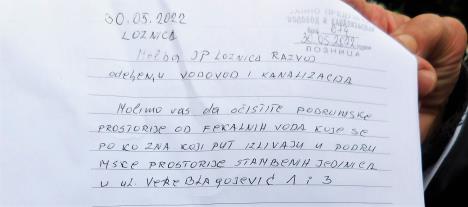 30.05.2022
LOZNICA
Molba JP LOZNICA RAZVOJ
odeljenju VODOVOD I KANALIZACIJA
Molimo vas da očistite PODRUMSKE
PROSTORIJE OD FEKALNIH VODA KOJE SE
PO KO ZNA KOJI PUT IZLIVAJU U PODRU
MSKE PROSTORIJE STAMBENIH JEDINICA
U ul. VERE BLAGOJEVIĆ 1 i 3
30.05.2022
ЛОЗНИЦА